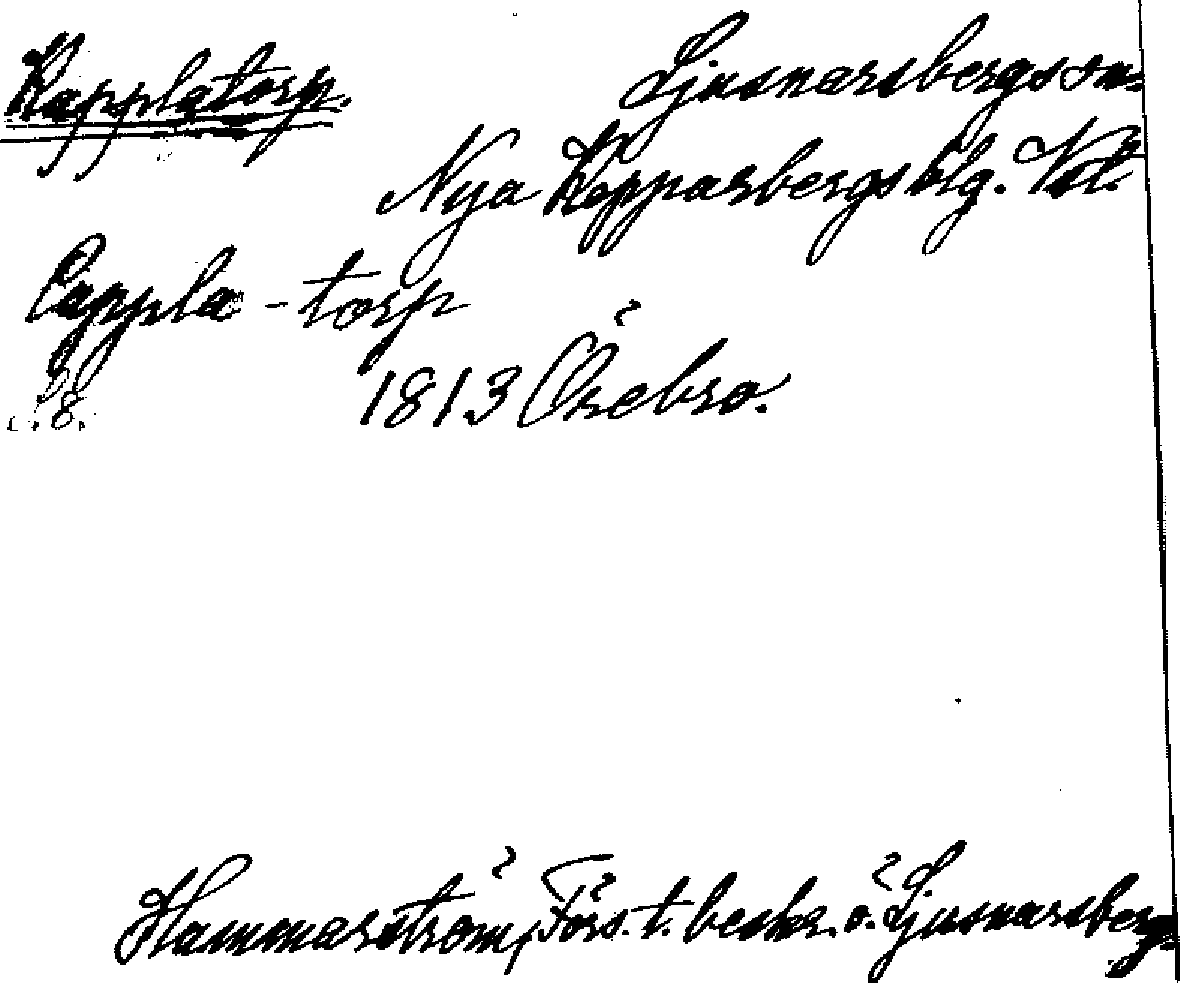 Kapplatorp. Ljusnarsbergs sn.
Nya Kopparbergs blg. Vstl.
Cappla-torp
28. 1813 Örebro.
Hammarström, Förs. t. beskr. ö. Ljusnarsberg.